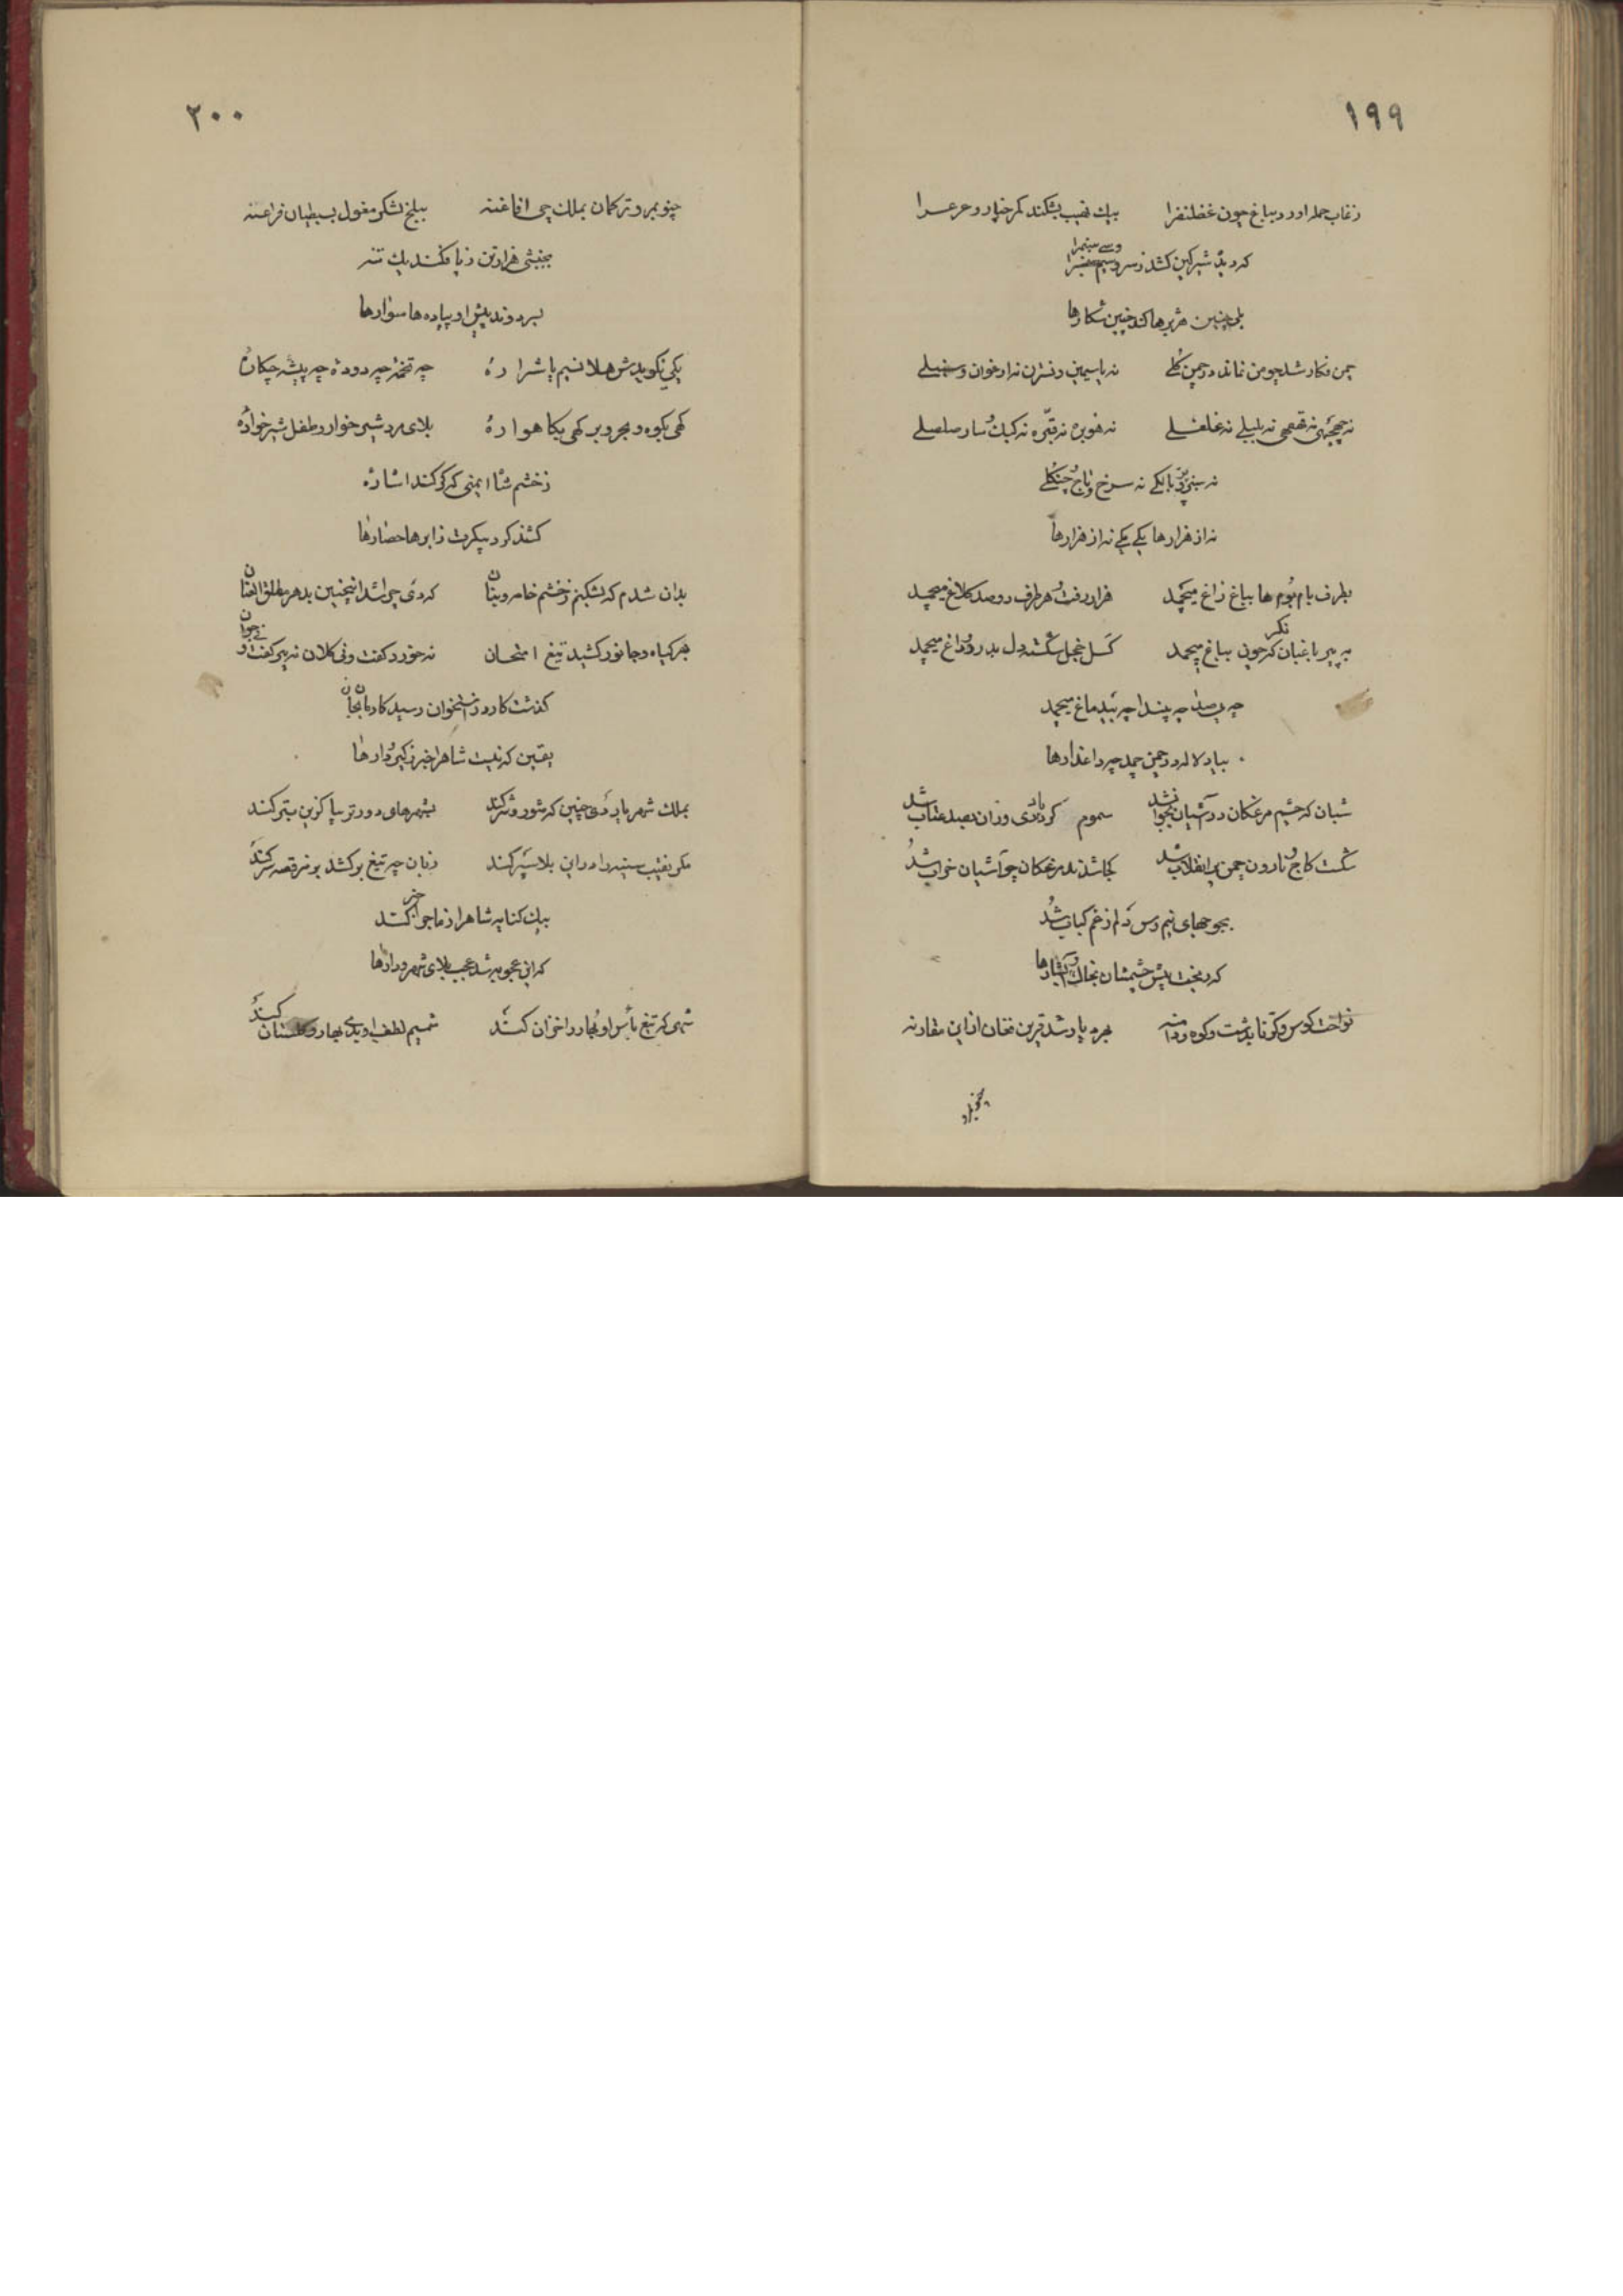 ۱۹۹
زغاب حمله اورد بباغ چون غضنفرا بیك نهیب بشکند کمر خیار و عرعرا
که دیدٔ شیر کین کشد ز سرو سیم
وسی سنمرا
بلی چنین هژبرها کند چنین شکارها
چمن فکار شد چو من نماند در چمن گلی نه یاسمین و نسترن نه ارغوان و سنبلی
نه چهچهی نه قهقهی نه بلبلی نه غلغلی نه هوبره نه قبّره نه کبك و سار و صلصلی
نه سبز پرّ بابکی نه سرخ تاج چنگلی
نه از هزارها یکی یکی نه از هزارها
بطرف بام بُوم ها بباغ زاغ میچمد هزار رفت و هر طرف دو صد کلاغ میچمد
به پیر باغبان نگر که چون بباغ میچمد کسل خجل شکسته دل بدرد و داغ میچمد
چه بی صدا چه بی ندا چه بی دماغ میچمد
بیاد لاله در چمن چمد چو داغدارها
شبان که چشم مرغکان در آشیان بخواب نشد سموم گرد باد دی وزان بصد عتاب شد
شکست کاج و نارون چمن پر انقلاب شد کجا شدند مرغکان چو آشیان خراب شد
بجوجهای نیم رس دلم ز غم کباب شد
که ریخت پیش چشمشان بخاك و
نواخت کوس و کرنا بدشت و کوه و دامنه بهر دیار شد قرین فغان ازاین مقارنه
۲۰۰
چنو بمرو ترکمان بملك جی افاغنه ببلخ لشکر مغول بسبطیان فراعنه
بجنبشی هزار تن ز پا فکند یك تنه
نبرد وند پیش او پیاده ها سوارها
یکی نگویدش هلا نسیم یا شرارهٔ چه تخمهٔ چه دودهٔ چه پیشه چکارهٔ
گهی بکوه و بحر و بر گهی بکاهوارهٔ بلای مرد شیر خوار و طفل شیر خوارهٔ
ز خشم شاا یمنی که گر کند اشارهٔ
کشند گرد پیکرت ز ابرها حصارها
بدان شدم که بشکنم ز خشم خامه و بنان که دی چرا شد اینچنین بدهر مطلق العنان
بهر گیاه و جانور کشید تیغ امتحان نه خورد گفت و نی کلان نه پیر گفت و نی جوان
گذشت کارد ز استخوان رسید کار ما بجان
یقین که نیست شاهرا خبر ز گیر و دارها
بملك شهریار دی چنین که شور و شر کند بشهرهای دورتر بیا کزین بتر کند
مگر نقیب سینه را در این بلا سپر کند زبان چو تیغ برکشد بو نر قصه سر کند
بیك کنایه شاهرا ز ماجرا خبر کند
که این عجوبه شد عجب بلای شهر و دارها
شهی که تیغ بأس او بهار را خزان کند شمیم لطف او بدی بهار و گلستان کند